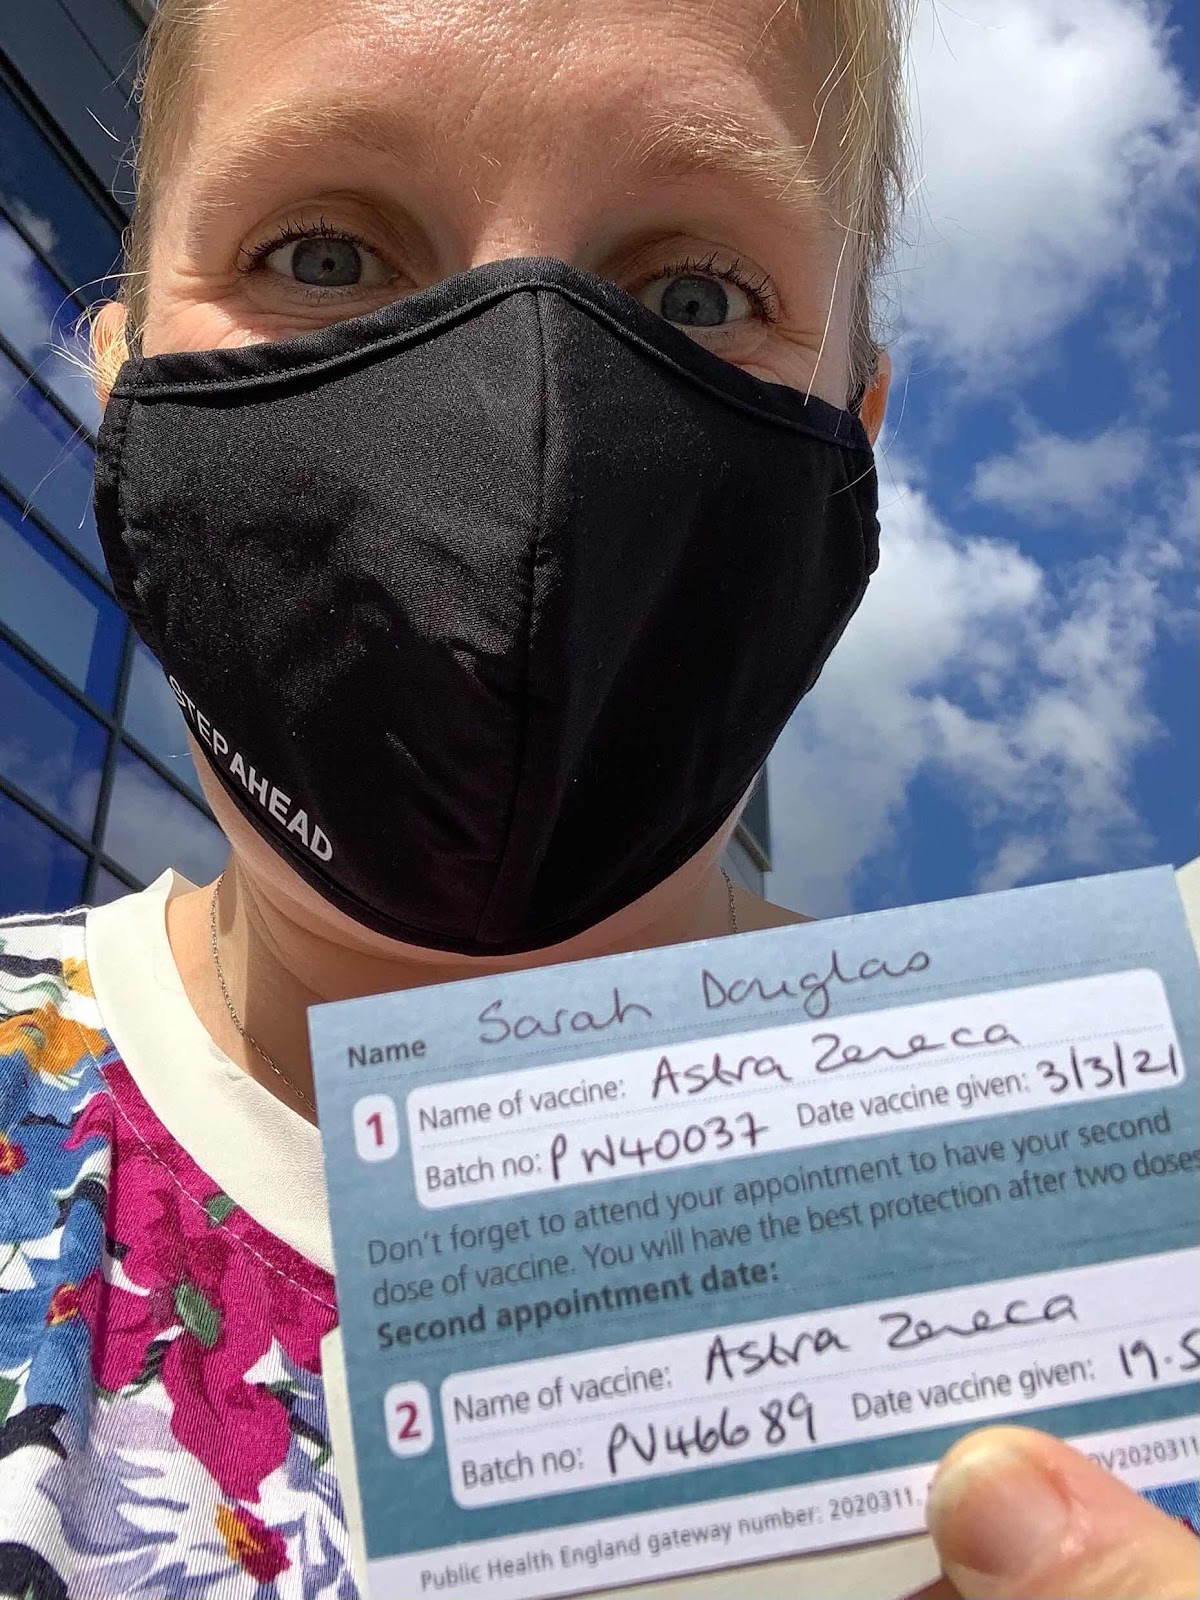 STEPAHEAD
Name Sarah Douglas
1 Name of vaccine: Astra Zeneca
Batch no: PW40037 Date vaccine given: 3/3/21
Don't forget to attend your appointment to have your second
dose of vaccine. You will have the best protection after two doses
Second appointment date:
2 Name of vaccine: Astra Zeneca
Batch no: PV46689 Date vaccine given: 19.5
Public Health England gateway number: 2020311. OV2020311